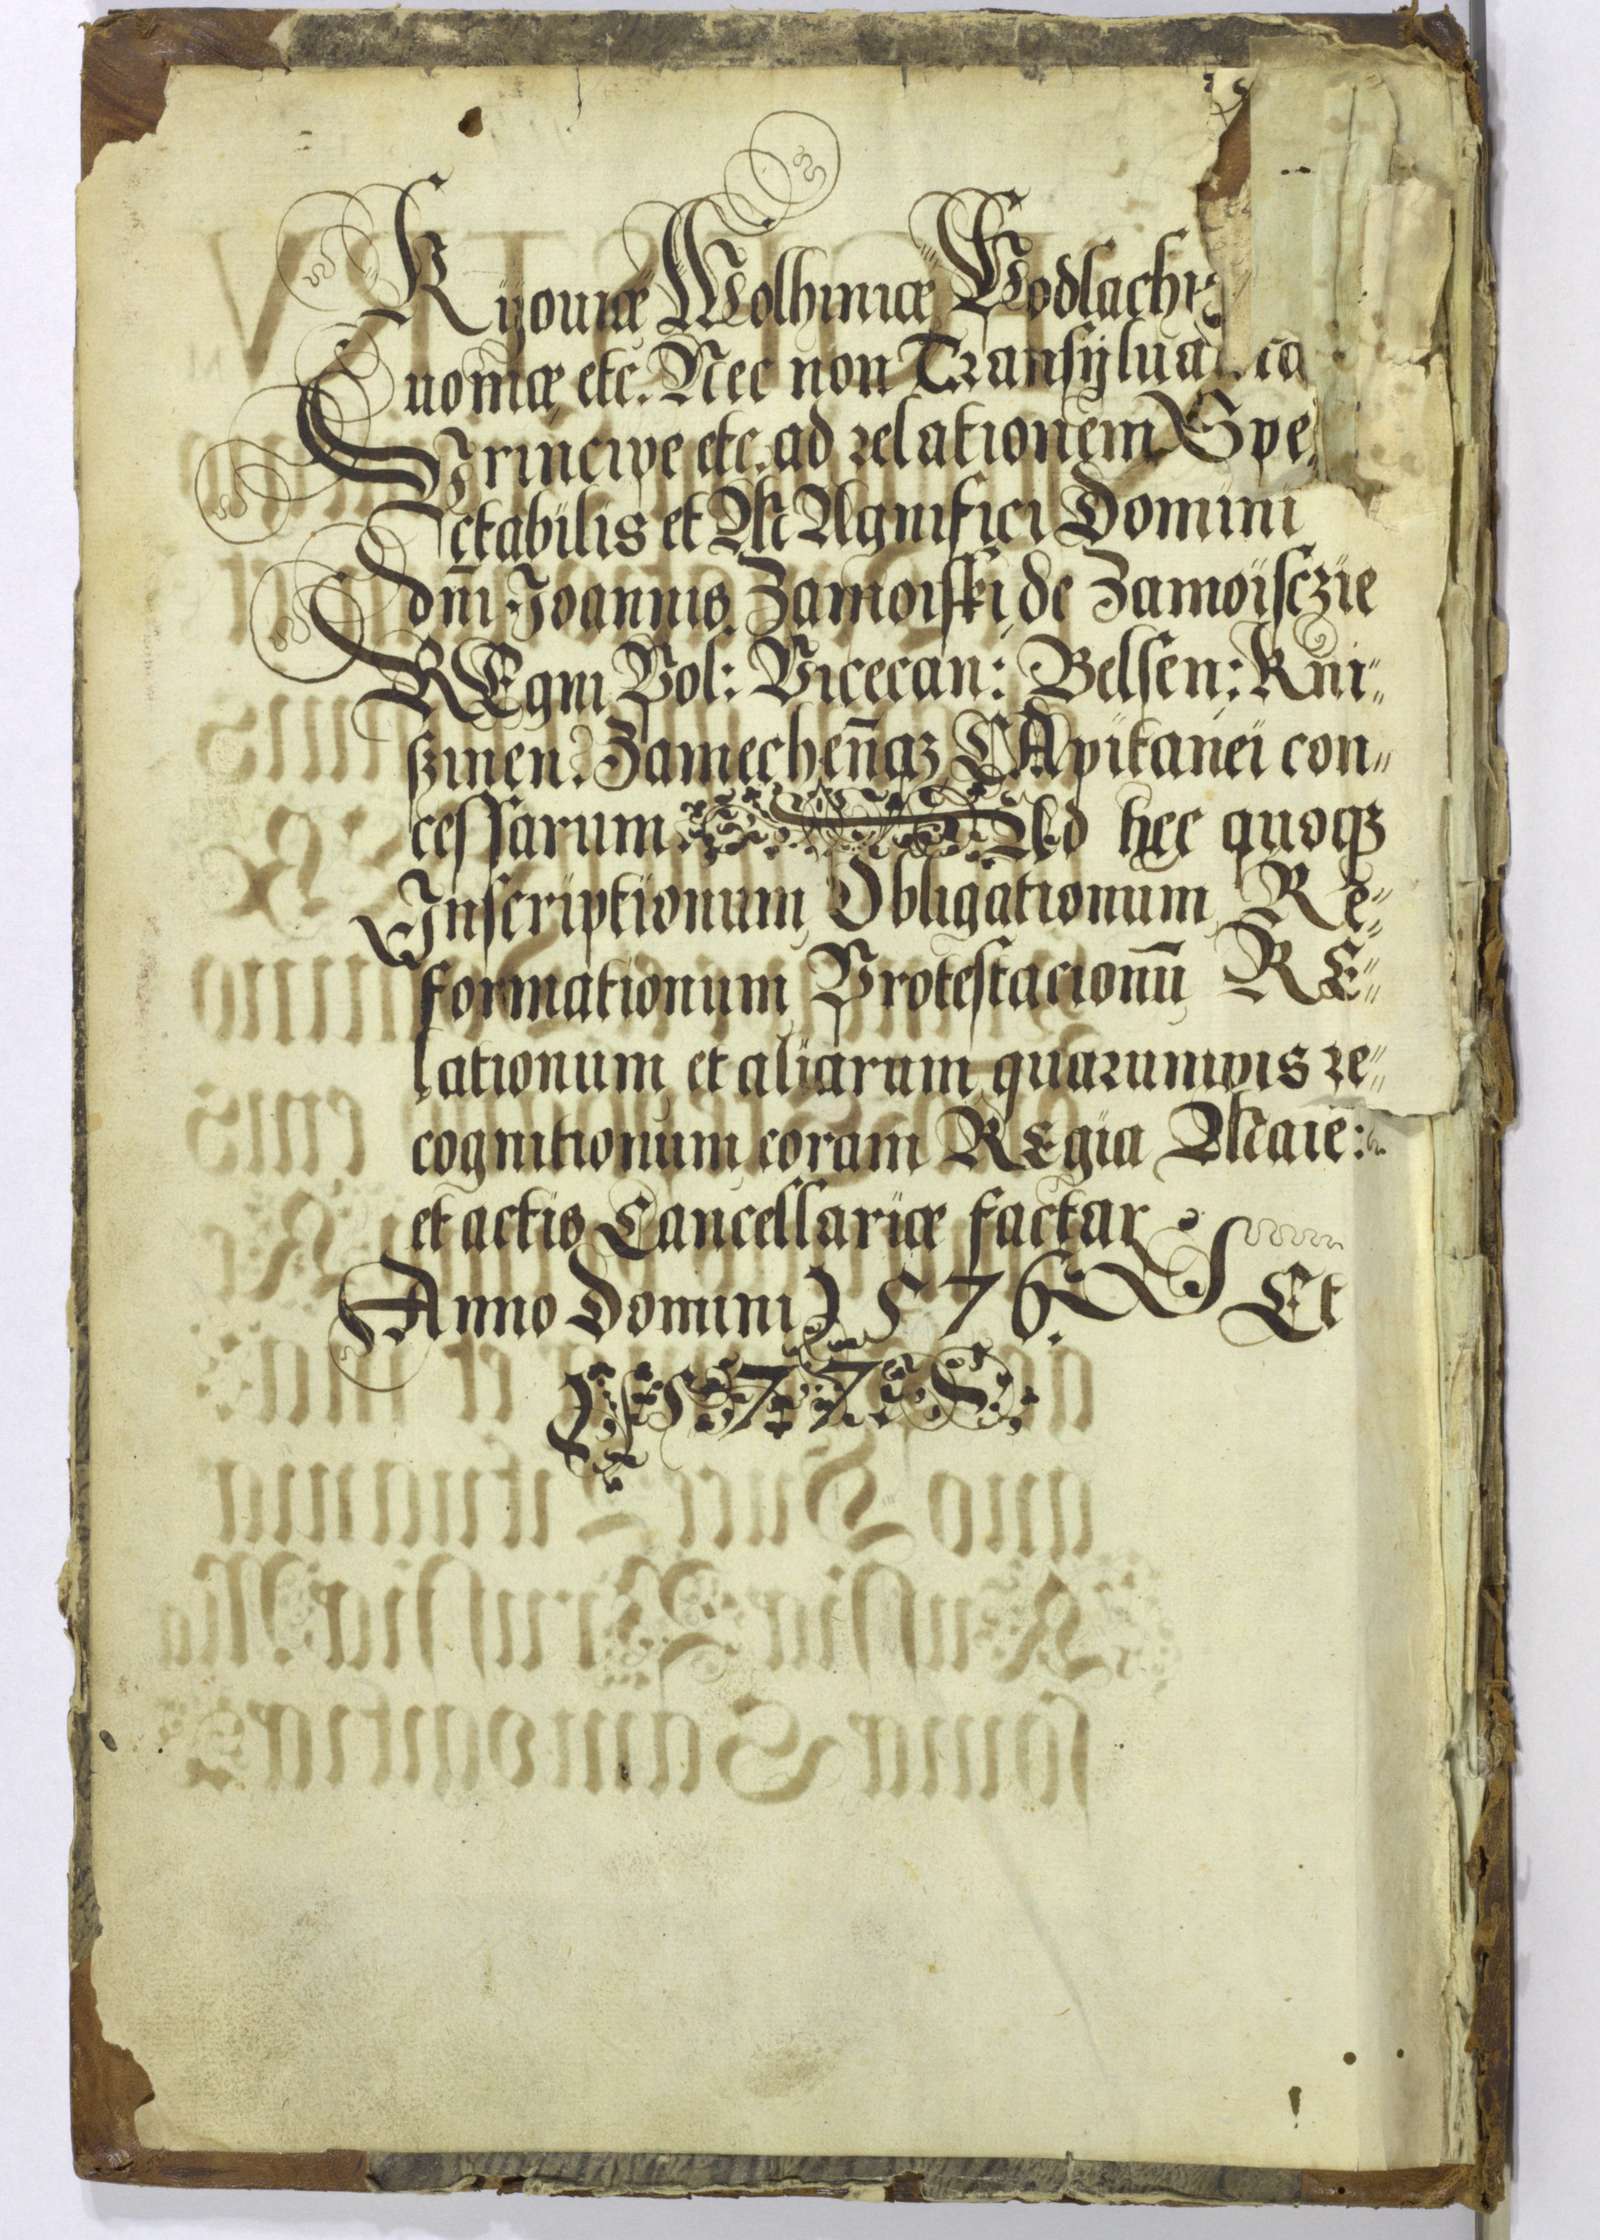 Kÿouiæ Wolhiniæ Podlachi
Liuoniæ etc. Nec non Transÿlua
Principe etc. ad relationem Spe
ctabilis et MAgnifici Domini
Dn̄i Joannis Zamoiski de Zamoisczie
REgni Pol: Vicecan: Belsen: Kni„
ßinen: Zamechen̄qꝫ CApitanei con„
cessarum. Ad hec quoqꝫ
Inscriptionum Obligationum Re„
formationum Protestacionū RE„
lationum et aliarum quarumvis re„
cognitionum coram REgia Maie:
et actis Cancellariæ factar
Anno Domini 1576. Et
1577